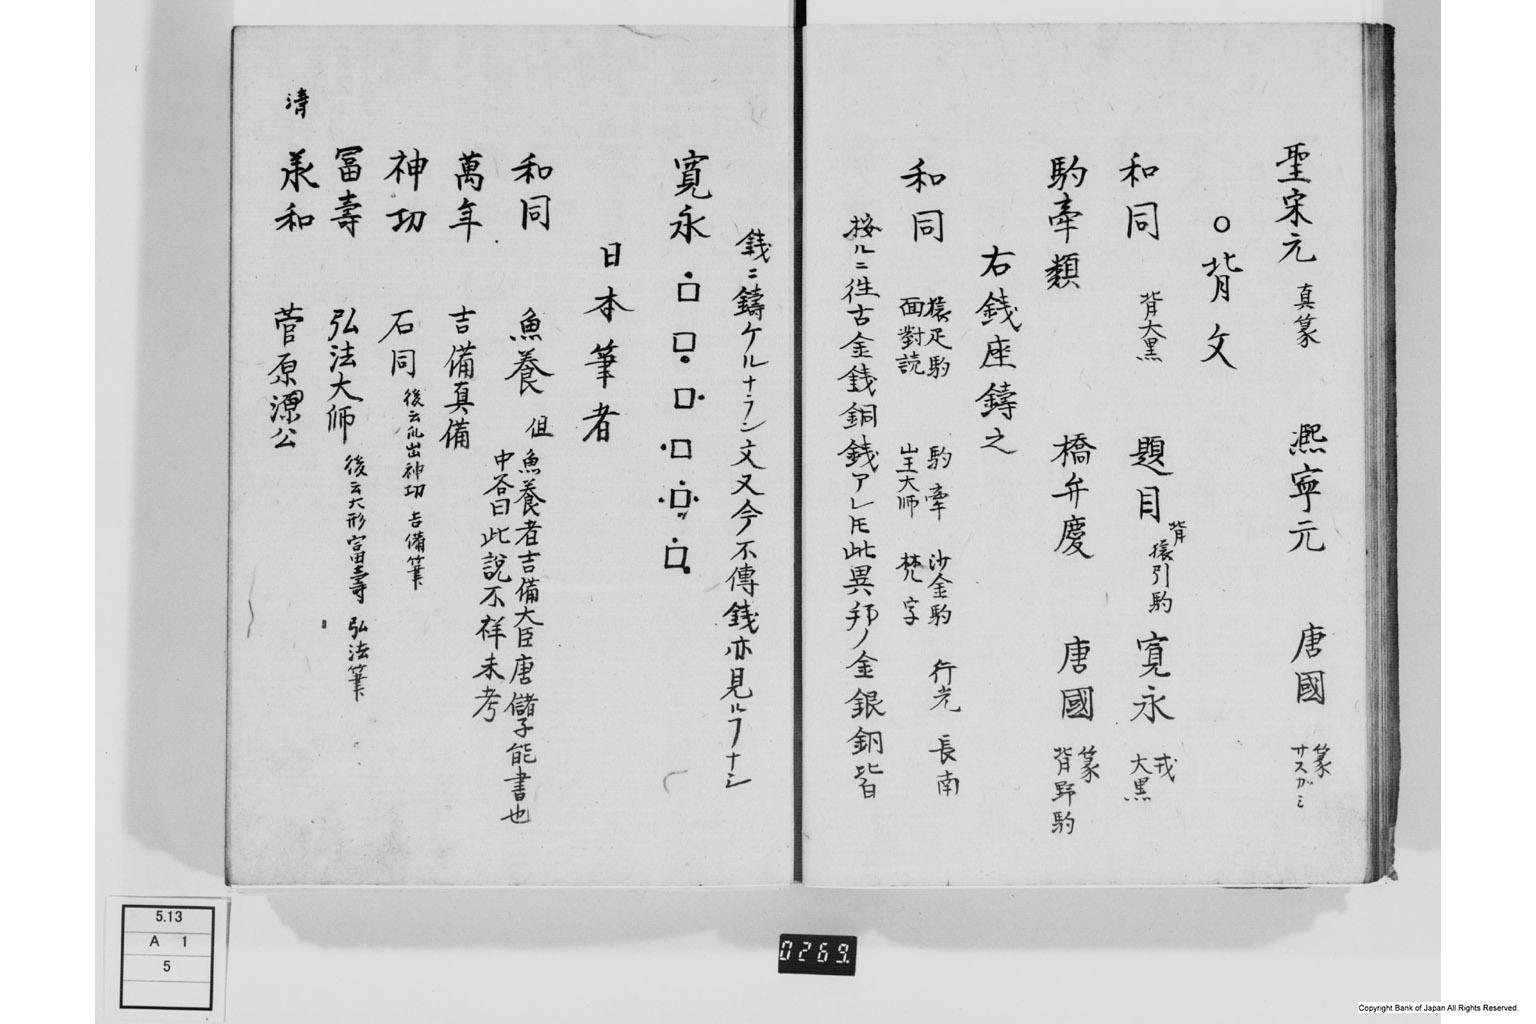 聖宋元 真篆 熈寧元 唐國 篆 サスガミ
○背文
和同 背大黒 題目 背 猿引駒 寛永 戎 大黒
駒牽類 橋弁慶 唐國 篆 背野駒
右銭座鋳之
和同 猿疋駒 面對読 駒牽 山王大师 沙金駒 梵字 行光 長南
按ルニ徃古金銭銅銭アレ𪜈此異邦ノ金銀銅皆
銭ニ鑄ケルナラン文又今不傳銭亦見ルヿナシ
寛永
日本筆者
和同 魚養 但 魚養者吉備大臣唐儲子能書也
中谷曰此説不祥未考
萬年 吉備真備
神功 石同 後云 出神功 吉備筆
冨壽 弘法大师 後云大形富壽 弘法筆
清 承和 菅原 公
5.13
A 1
5
0269.
Copyright Bank of Japan All Rights Reserved.